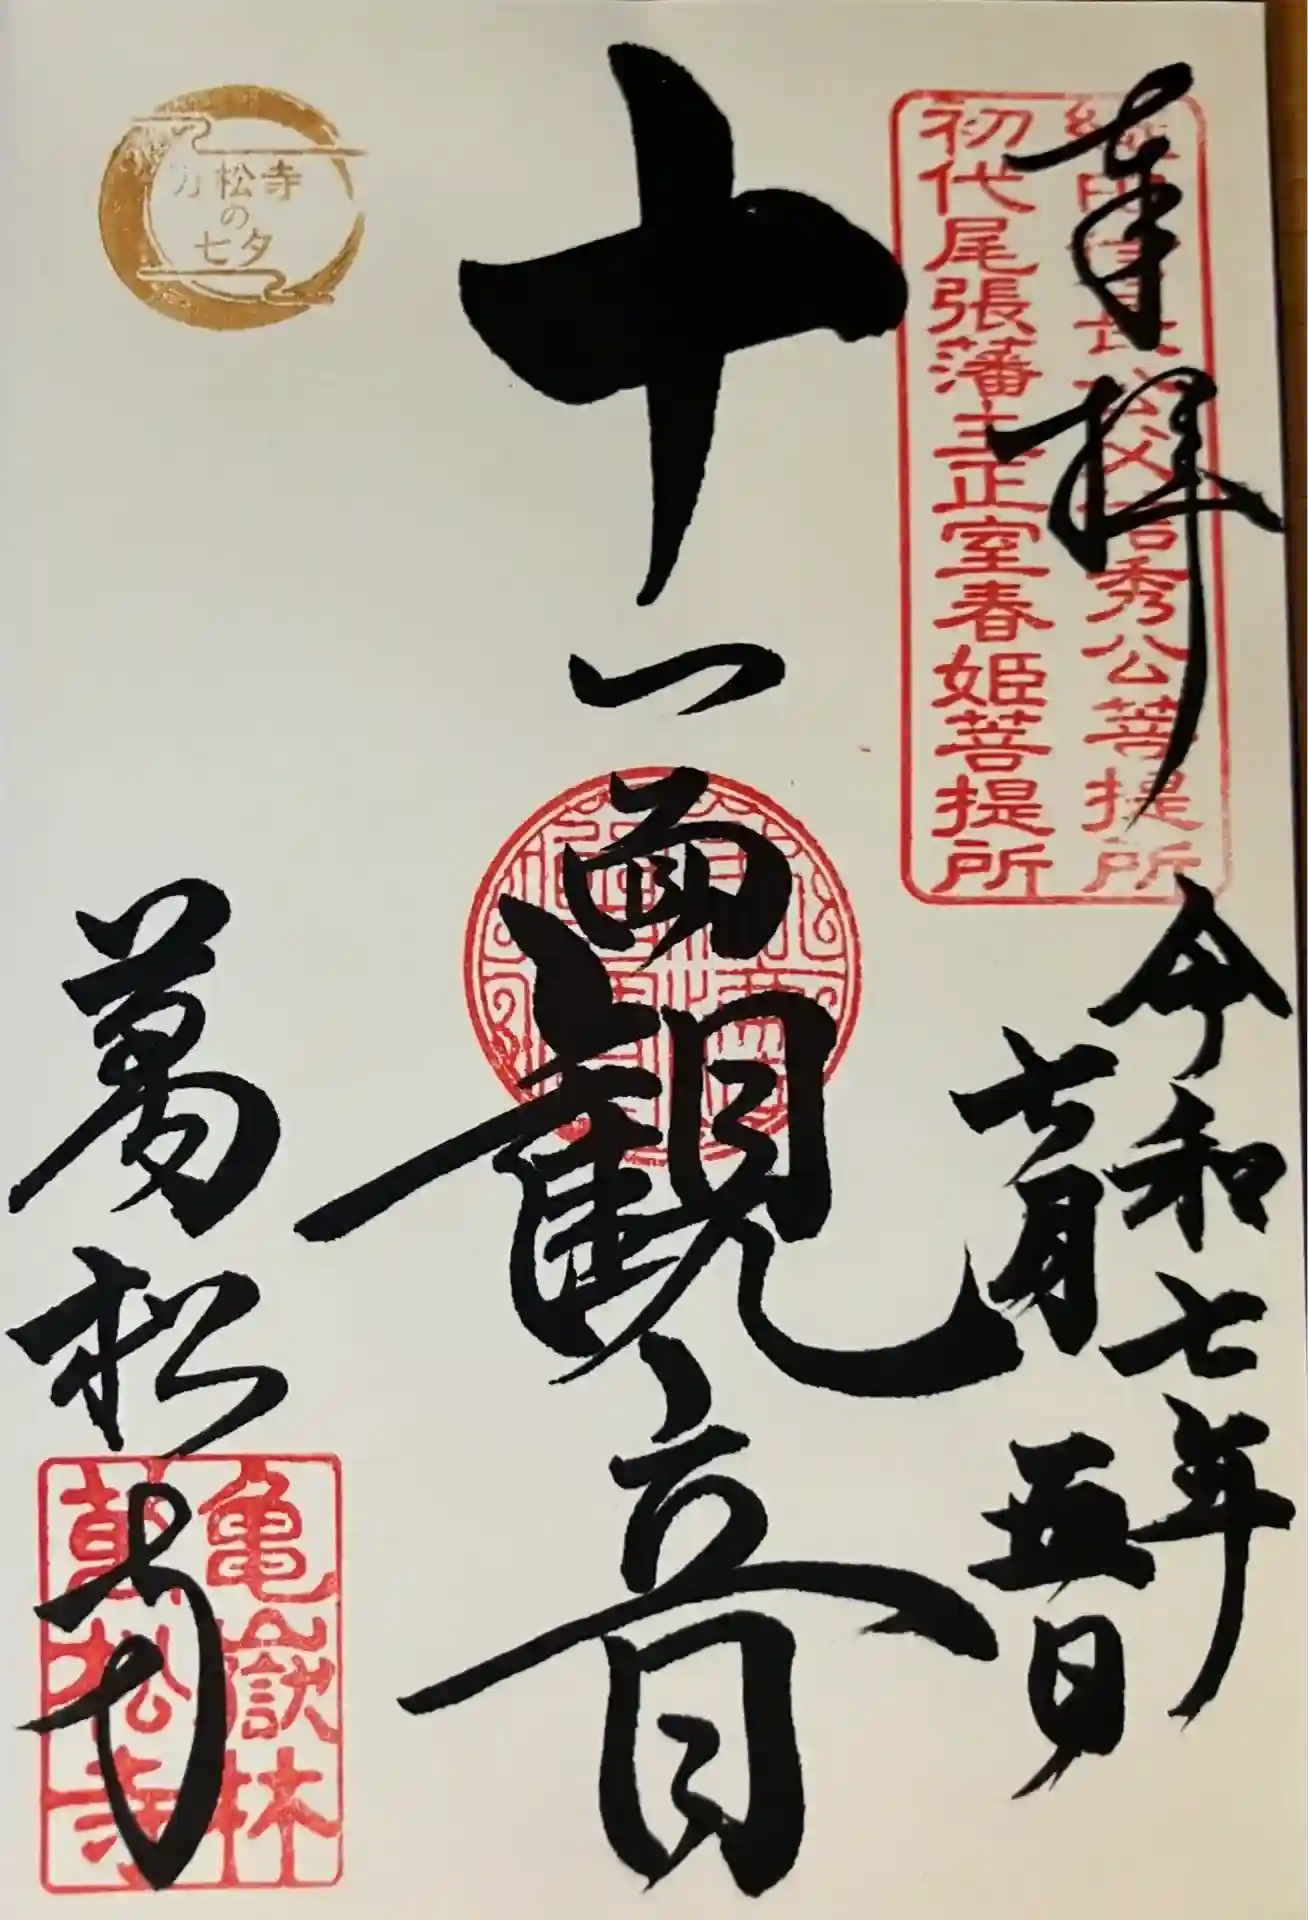 奉拝
織田信長公父信秀公菩提所
初代尾張藩主正室春姫菩提所
令和七年
七月五日
十一面観音
万松寺
の
七夕
萬松寺
亀嶽林
萬松寺